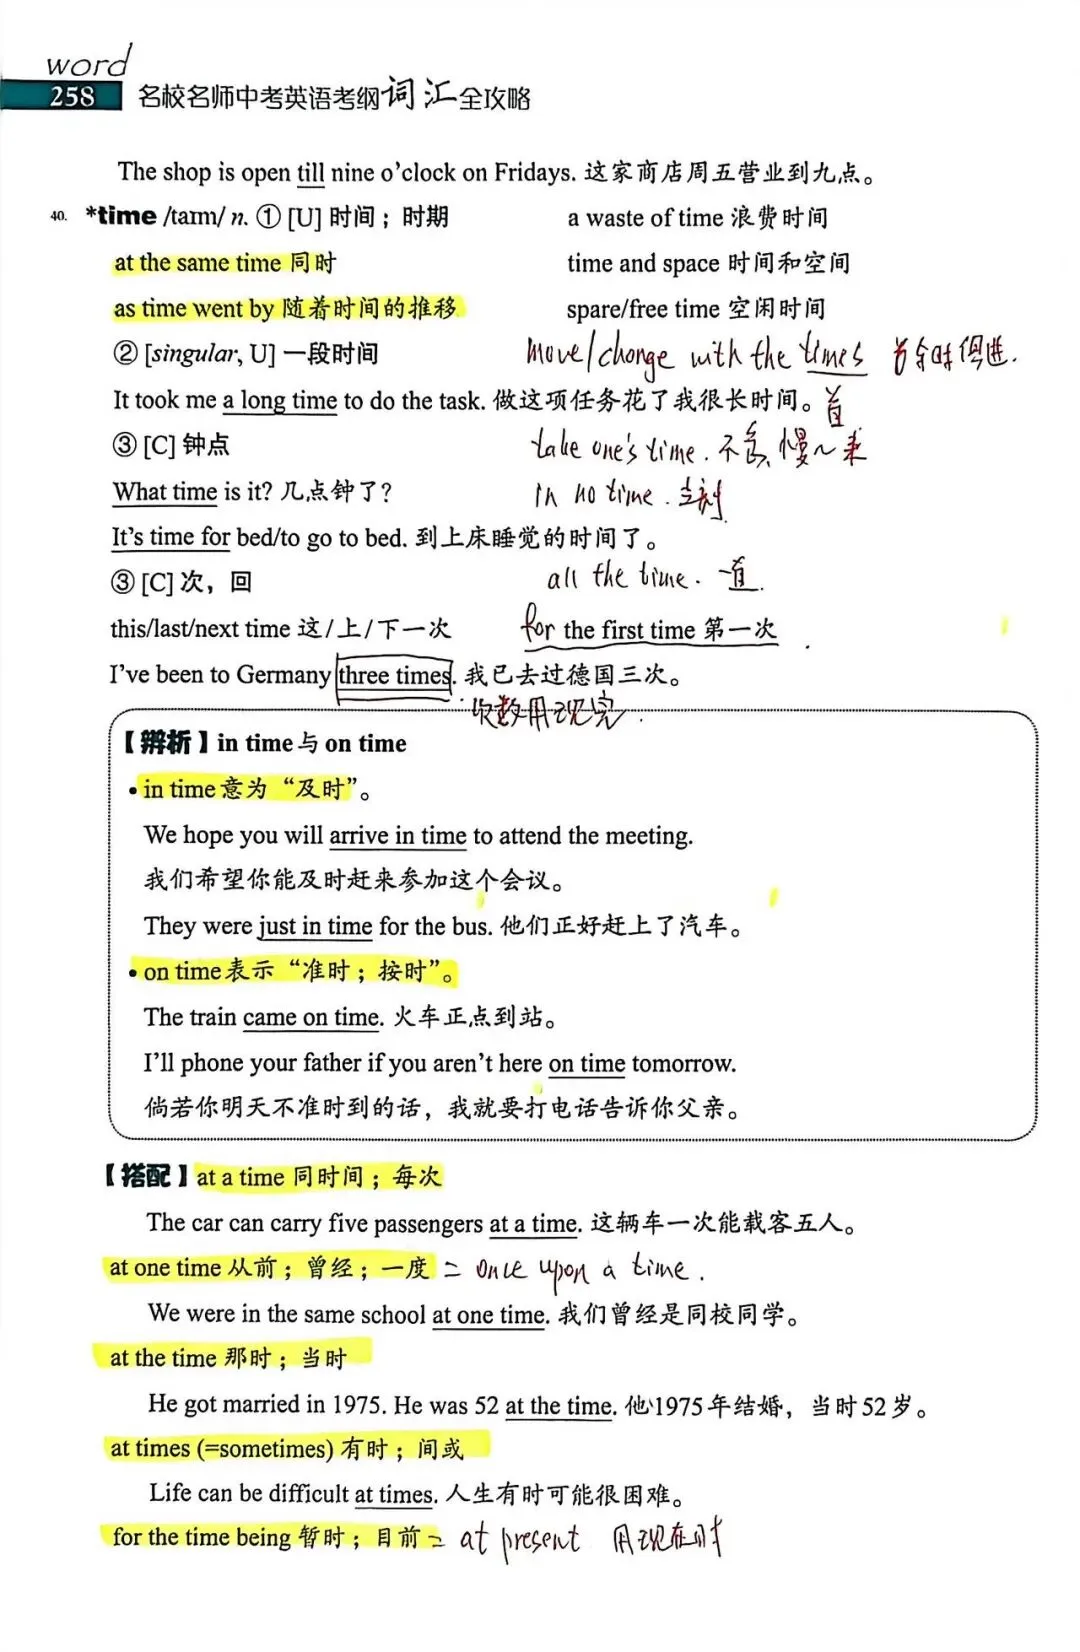 word
258 名校名师中考英语考纲词汇全攻略
The shop is open till nine o'clock on Fridays. 这家商店周五营业到九点。
40. *time /taɪm/ n. ① [U] 时间；时期 a waste of time 浪费时间
at the same time 同时 time and space 时间和空间
as time went by 随着时间的推移 spare/free time 空闲时间
② [singular, U] 一段时间 move/change with the times 俱进.
It took me a long time to do the task. 做这项任务花了我很长时间。
③ [C] 钟点 take one's time. 不急, 慢~来
What time is it? 几点钟了? in no time. 立刻
It's time for bed/to go to bed. 到上床睡觉的时间了。
③ [C] 次，回 all the time. 一直.
this/last/next time 这/上/下一次 for the first time 第一次
I've been to Germany three times. 我已去过德国三次。
次数用现完.
【辨析】in time 与 on time
• in time 意为“及时”。
We hope you will arrive in time to attend the meeting.
我们希望你能及时赶来参加这个会议。
They were just in time for the bus. 他们正好赶上了汽车。
• on time 表示“准时；按时”。
The train came on time. 火车正点到站。
I'll phone your father if you aren't here on time tomorrow.
倘若你明天不准时到的话，我就要打电话告诉你父亲。
【搭配】at a time 同时间；每次
The car can carry five passengers at a time. 这辆车一次能载客五人。
at one time 从前；曾经；一度 = once upon a time.
We were in the same school at one time. 我们曾经是同校同学。
at the time 那时；当时
He got married in 1975. He was 52 at the time. 他1975年结婚，当时52岁。
at times (=sometimes) 有时；间或
Life can be difficult at times. 人生有时可能很困难。
for the time being 暂时；目前 = at present 用现在时